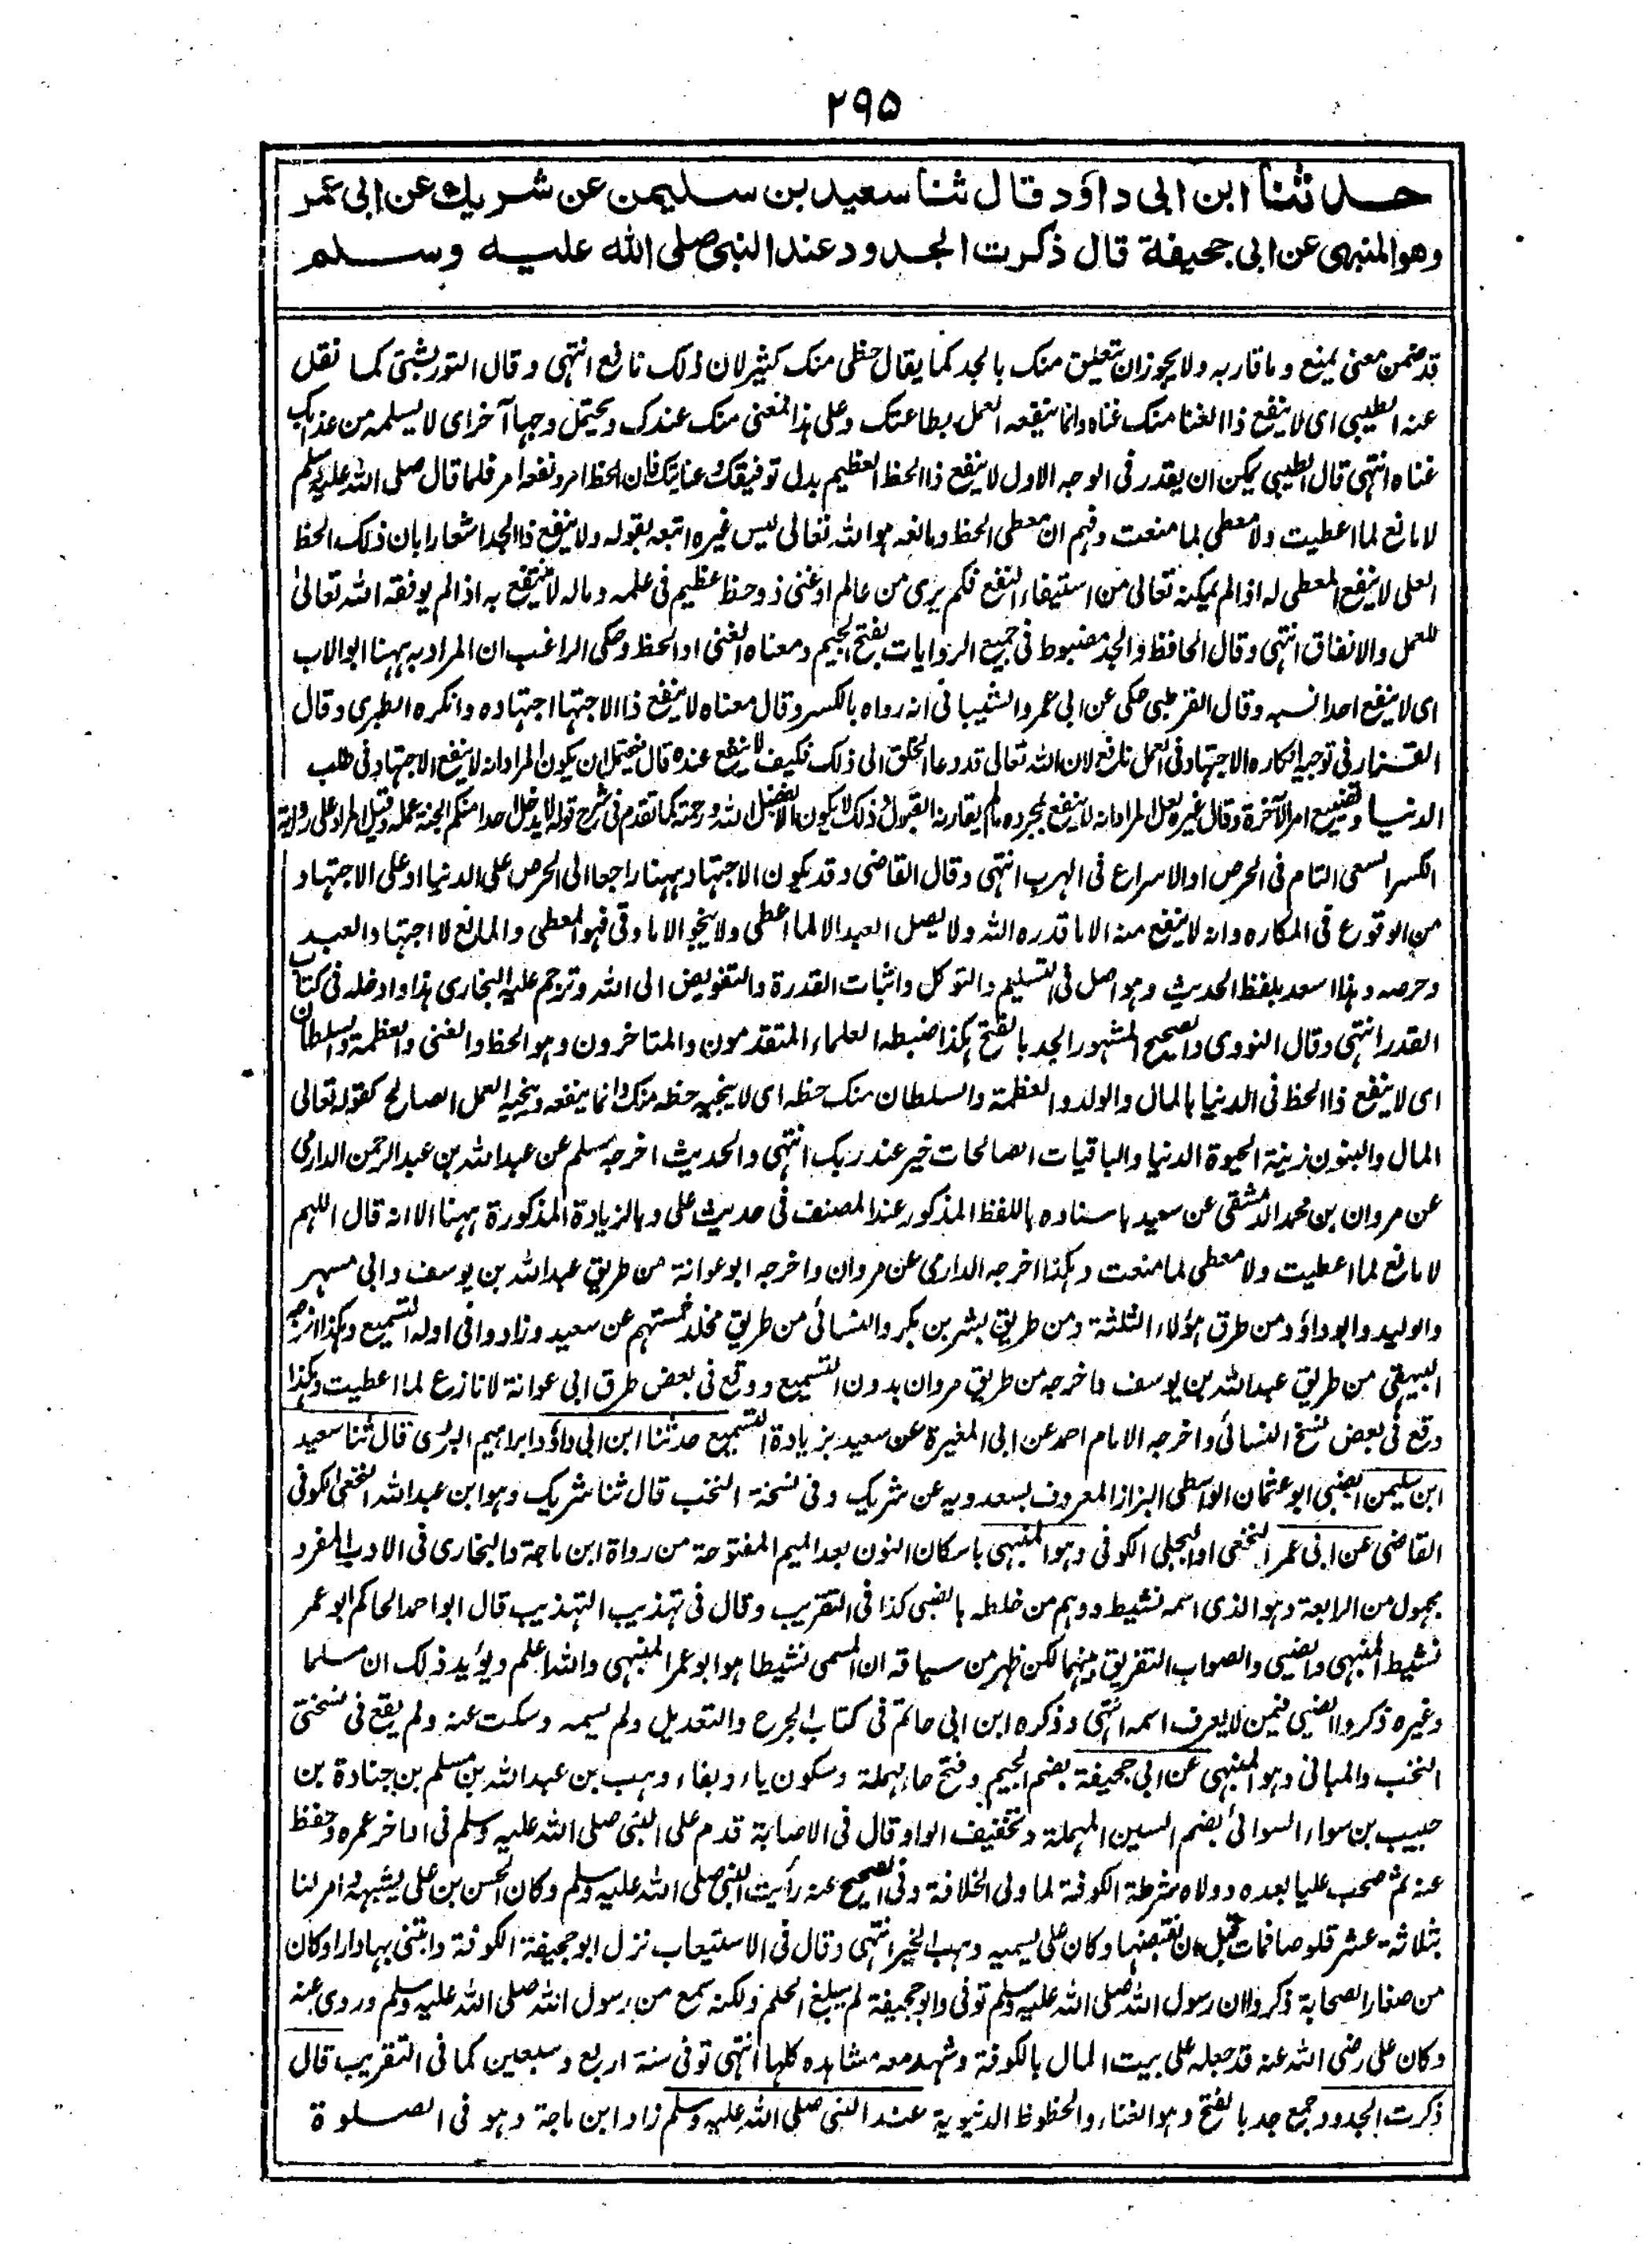 ۲۹۵
حدثنا ابن ابی داؤد قال ثنا سعید بن سلیمن عن شریك عن ابی عمر
وهو المنبهی عن ابی جحیفة قال ذکرت الجدود عند النبی صلی الله علیه وسلم
قد ضمن معنی یمنع وما قاربه ولا یجوز ان یتعلق منک بالجد کما یقال حظی منک کثیر لان ذلک نافع انتهی وقال التوربشتی کما نقل
عنه الطیبی ای لا ینفع ذا الغنا منک غناه وانما ینفعه العمل بطاعتک وعلی هذا المعنی منک عندک ویحتمل وجها آخر ای لا یسلمه من عذابک
غناه انتهی قال الطیبی یمکن ان یقدر فی الوجه الاول لا ینفع ذا الحظ العظیم بدل توفیقک وعنایتک فان الحظ امر ونفعه امر فلما قال صلی الله علیه وسلم
لا مانع لما اعطیت ولا معطی لما منعت وفهم ان معطی الحظ ومانعه هو الله تعالی لیس غیره اتبعه بقوله ولا ینفع ذا الجد اشعارا بان ذلک الحظ
العلی لا ینفع المعطی له اذا لم یمکنه تعالی من استیفاء النفع فکم یری من عالم او غنی ذو حظ عظیم فی علمه وماله لا ینتفع به اذا لم یوفقه الله تعالی
للعمل والانفاق انتهی وقال الحافظ والجد مضبوط فی جمیع الروایات بفتح الجیم ومعناه الغنی او الحظ وحکی الراغب ان المراد به ههنا ابو الاب
ای لا ینفع احدا نسبه وقال القرطبی حکی عن ابی عمرو الشیبانی انه رواه بالکسر وقال معناه لا ینفع ذا الاجتهاد اجتهاده وانکره الطبری وقال
القزاز فی توجیه انکاره الاجتهاد فی العمل نافع لان الله تعالی قد دعا الخلق الی ذلک فکیف لا ینفع عنده قال فیحتمل ان یکون المراد انه لا ینفع الاجتهاد فی طلب
الدنیا وتضییع امر الآخرة وقال غیره لعل المراد انه لا ینفع بمجرده ما لم یقارنه القبول وذلک لا یکون الا بفضل الله ورحمته کما تقدم فی شرح قوله لا یدخل احدا منکم الجنة عمله وقیل المراد علی روایة
الکسر السعی التام فی الحرص او الاسراع فی الهرب انتهی وقال القاضی وقد یکون الاجتهاد ههنا راجعا الی الحرص علی الدنیا او علی الاجتهاد
من الوقوع فی المکاره وانه لا ینفع منه الا ما قدره الله ولا یصل العبد الا لما اعطی ولا ینجو الا ما وقی فهو المعطی والمانع لا اجتهاد العبد
وحرصه وهذا اسعد بلفظ الحدیث وهو اصل فی التسلیم والتوکل واثبات القدرة والتفویض الی الله وترجم علیه البخاری هذا وادخله فی کتاب
القدر انتهی وقال النووی والصحیح المشهور الجد بالفتح هکذا ضبطه العلماء المتقدمون والمتاخرون وهو الحظ والغنی والعظمة والسلطان
ای لا ینفع ذا الحظ فی الدنیا بالمال والولد والعظمة والسلطان منک حظه ای لا ینجیه حظه منک وانما ینفعه وینجیه العمل الصالح کقوله تعالی
المال والبنون زینة الحیوة الدنیا والباقیات الصالحات خیر عند ربک انتهی والحدیث اخرجه مسلم عن عبد الله بن عبد الرحمن الدارمی
عن مروان بن محمد الدمشقی عن سعید باسناده باللفظ المذکور عند المصنف فی حدیث علی وبالزیادة المذکورة ههنا الا انه قال اللهم
لا مانع لما اعطیت ولا معطی لما منعت وهکذا اخرجه الدارمی عن مروان واخرجه ابو عوانة من طریق عبد الله بن یوسف وابی مسهر
والولید وابو داؤد من طرق هؤلاء الثلثة ومن طریق بشر بن بکر والنسائی من طریق مخلد خمستهم عن سعید وزادوا فی اوله التسمیع وهکذا اخرجه
البیهقی من طریق عبد الله بن یوسف واخرجه من طریق مروان بدون التسمیع ووقع فی بعض طرق ابی عوانة لا نازع لما اعطیت وهکذا
وقع فی بعض نسخ النسائی واخرجه الامام احمد عن ابی المغیرة عن سعید بزیادة التسمیع حدثنا ابن ابی داؤد ابراهیم البرلسی قال ثنا سعید
ابن سلیمن الضبی ابو عثمان الواسطی البزاز المعروف بسعدویه عن شریک وفی نسخة النخب قال ثنا شریک وهو ابن عبد الله النخعی الکوفی
القاضی عن ابی عمر النخعی او البجلی الکوفی وهو المنبهی باسکان النون بعد المیم المفتوحة من رواة ابن ماجة والبخاری فی الادب المفرد
مجهول من الرابعة وهو الذی اسمه نشیط ووهم من خلطه بالضبی کذا فی التقریب وقال فی تهذیب التهذیب قال ابو احمد الحاکم ابو عمر
نشیط المنبهی والضبی والصواب التفریق بینهما لکن ظهر من سیاقه ان المسمی نشیطا هو ابو عمر المنبهی والله اعلم ویؤید ذلک ان مسلما
وغیره ذکروا الضبی فیمن لا یعرف اسمه انتهی وذکره ابن ابی حاتم فی کتاب الجرح والتعدیل ولم یسمه وسکت عنه ولم یقع فی نسختی
النخب والمبانی وهو المنبهی عن ابی جحیفة بضم الجیم وفتح حاء مهملة وسکون یاء وبفاء وهب بن عبد الله بن مسلم بن جنادة بن
حبیب بن سواء السوائی بضم السین المهملة وتخفیف الواو قال فی الاصابة قدم علی النبی صلی الله علیه وسلم فی اواخر عمره وحفظ
عنه ثم صحب علیا بعده وولاه شرطة الکوفة لما ولی الخلافة وفی الصحیح عنه رأیت النبی صلی الله علیه وسلم وکان الحسن بن علی یشبهه وامر لنا
بثلاثة عشر قلوصا فمات قبل ان نقبضها وکان علی یسمیه وهب الخیر انتهی وقال فی الاستیعاب نزل ابو جحیفة الکوفة وابتنی بها دارا وکان
من صغار الصحابة ذکروا ان رسول الله صلی الله علیه وسلم توفی وابو جحیفة لم یبلغ الحلم ولکنه سمع من رسول الله صلی الله علیه وسلم وروی عنه
وکان علی رضی الله عنه قد جعله علی بیت المال بالکوفة وشهد معه مشاهده کلها انتهی توفی سنة اربع وسبعین کما فی التقریب قال
ذکرت الجدود جمع جد بالفتح وهو الغناء والحظوظ الدنیویة عند النبی صلی الله علیه وسلم زاد ابن ماجة وهو فی الصلوة